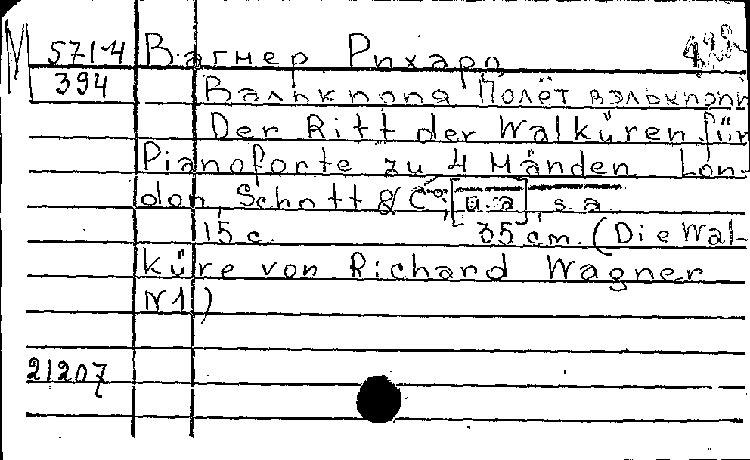 М 571-4 Вагнер Рихард
394 Валькирия Полёт валькирий
Der Ritt der Walküren für
Pianoforte zu 4 Händen Lon-
don, Schott & Co, [u.a], s.a.
15 c. 35 cm. (Die Wal-
küre von Richard Wagner
N1)
21207